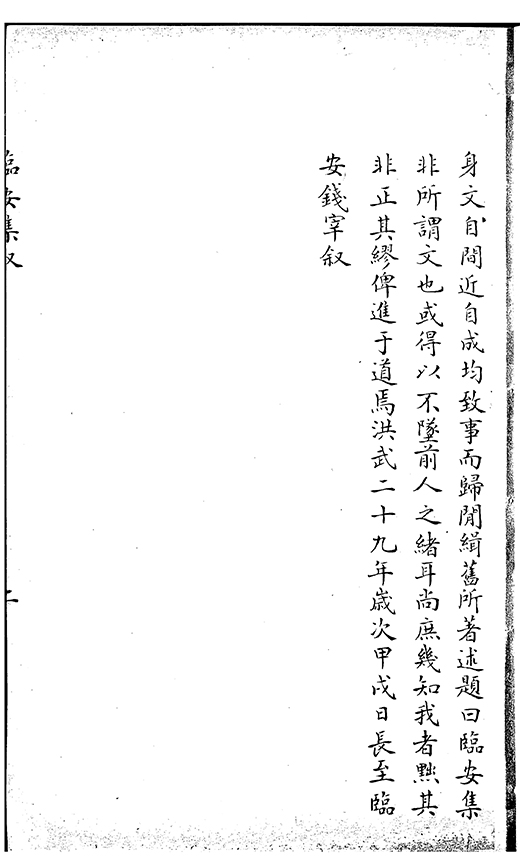 身文自間近自成均致事而歸閒緝舊所著述題曰臨安集
非所謂文也或得以不墜前人之緒耳尚庶幾知我者黜其
非正其繆俾進于道焉洪武二十九年歲次甲戌日長至臨
安錢宰叙
臨安集叙
二